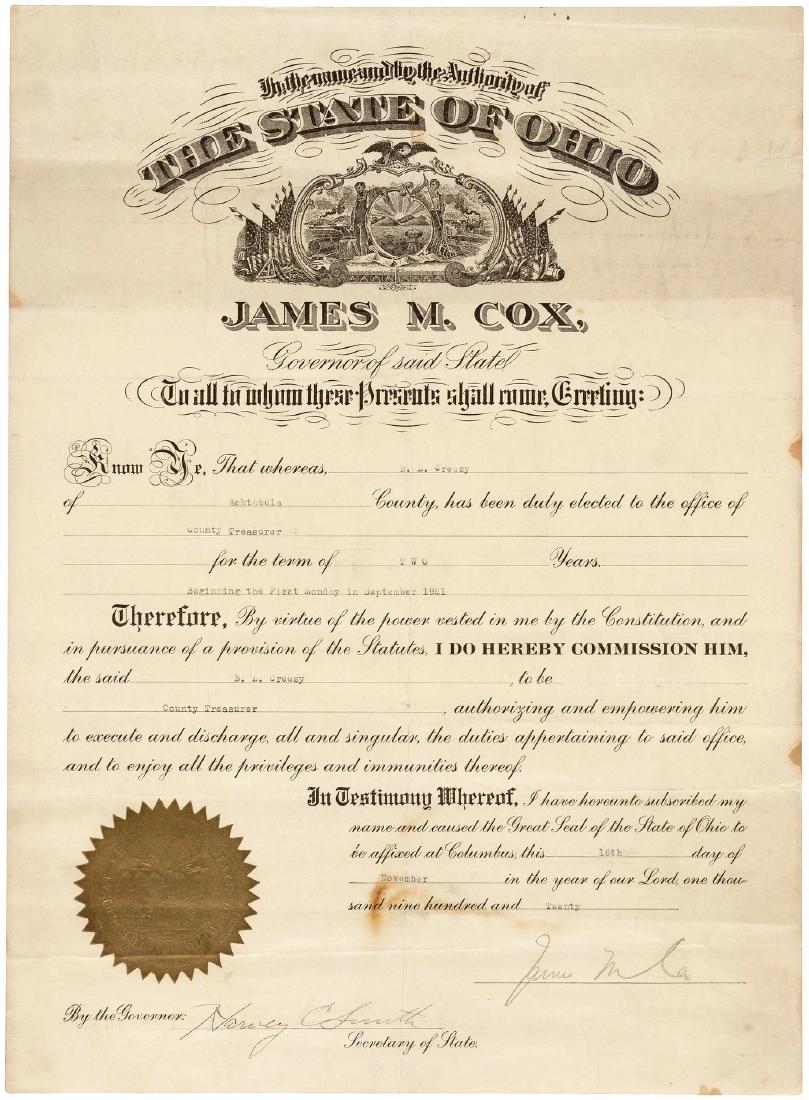 In the name and by the Authority of
THE STATE OF OHIO
JAMES M. COX,
Governor of said State
To all to whom these Presents shall come, Greeting:
Know Ye, That whereas, B. L. Creesy
of Ashtabula County, has been duly elected to the office of
County Treasurer
for the term of TWO Years.
Beginning the First Monday in September 1921
Therefore, By virtue of the power vested in me by the Constitution, and
in pursuance of a provision of the Statutes, I DO HEREBY COMMISSION HIM,
the said B. L. Creesy, to be
County Treasurer, authorizing and empowering him
to execute and discharge, all and singular, the duties appertaining to said office,
and to enjoy all the privileges and immunities thereof.
In Testimony Whereof, I have hereunto subscribed my
name and caused the Great Seal of the State of Ohio to
be affixed at Columbus, this 16th day of
November in the year of our Lord, one thou-
sand nine hundred and Twenty
James M Cox
By the Governor: Harvey C Smith
Secretary of State.